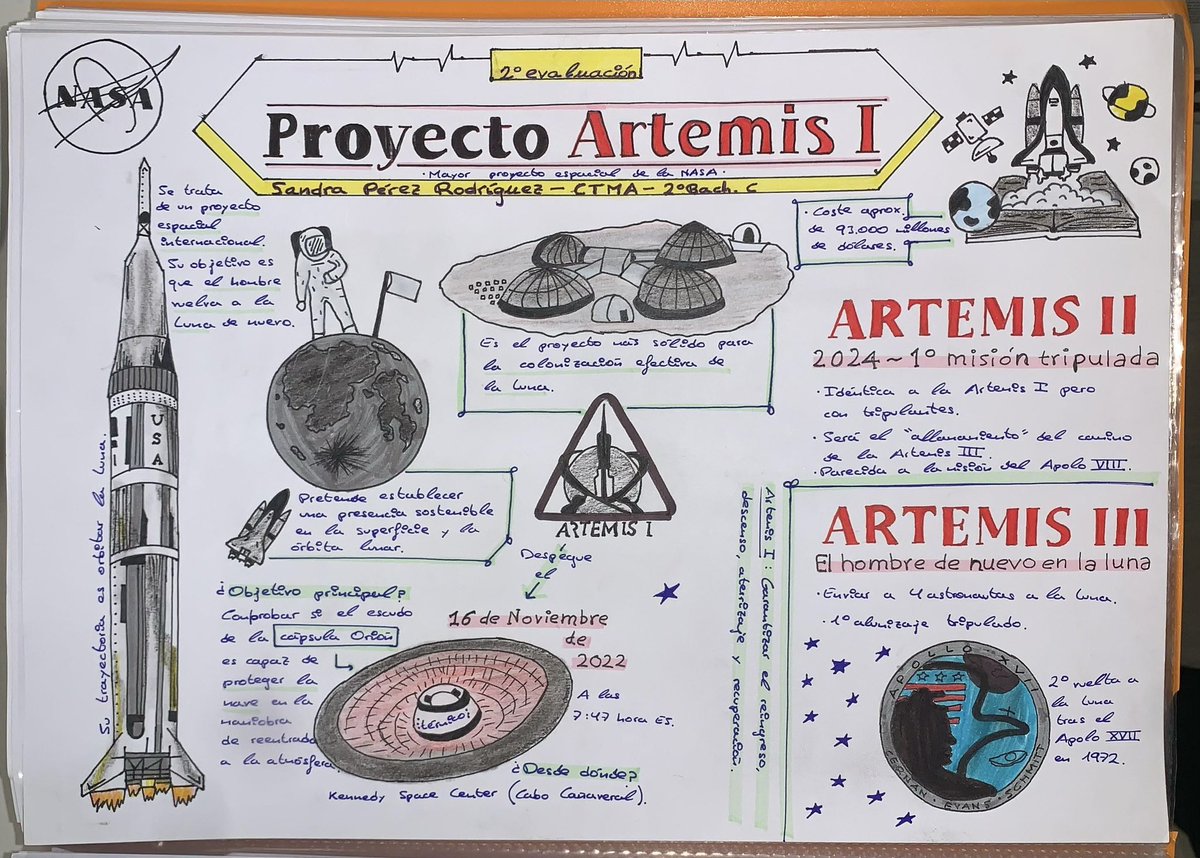 NASA
2º evaluación
Proyecto Artemis I
· Mayor proyecto espacial de la NASA ·
Sandra Pérez Rodríguez - CTMA - 2º Bach. C
Se trata
de un proyecto
espacial
internacional.
Su objetivo es
que el hombre
vuelva a la
Luna de nuevo.
USA
Su trayectoria es orbitar la Luna.
Es el proyecto más sólido para
la colonización efectiva de
la Luna.
· Coste aprox.
de 93.000 millones
de dólares.
Pretende establecer
una presencia sostenible
en la superficie y la
órbita lunar.
ARTEMIS I
Despegue
el
16 de Noviembre
de
2022
A las
7:47 hora ES.
¿Objetivo principal?
Comprobar si el escudo
de la cápsula Orión
es capaz de
proteger la
nave en la
maniobra
de reentrada
a la atmósfera.
térmico
¿Desde dónde?
Kennedy Space Center (Cabo Cañaveral).
Artemis I: Garantizar el reingreso,
descenso, aterrizaje y recuperación.
ARTEMIS II
2024 ~ 1º misión tripulada
· Idéntica a la Artemis I pero
con tripulantes.
· Será el "allanamiento" del camino
de la Artemis III.
· Parecida a la misión del Apolo VIII.
ARTEMIS III
El hombre de nuevo en la luna
· Enviar a 4 astronautas a la luna.
· 1º alunizaje tripulado.
APOLLO XVII
CERNAN · EVANS · SCHMITT
2º vuelta a
la luna
tras el
Apolo XVII
en 1972.